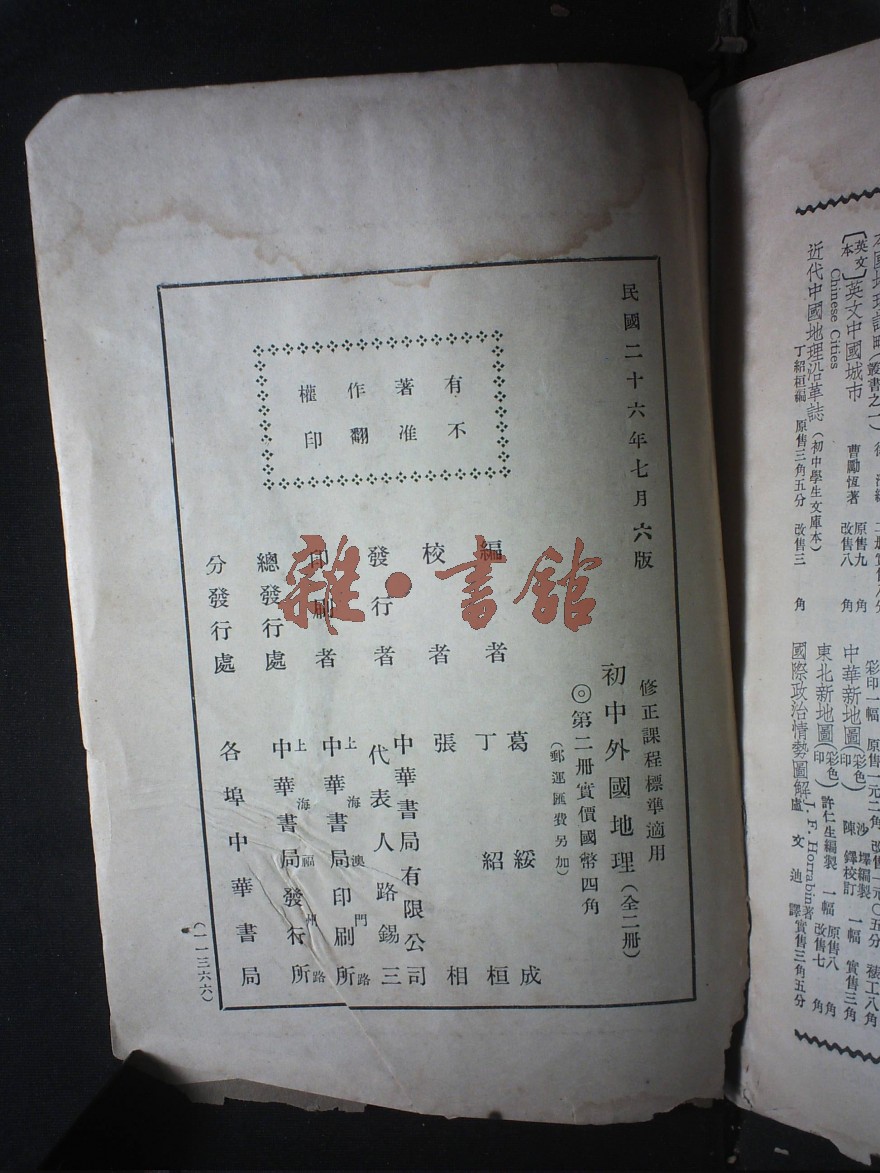 本國地理
(叢書之一)
〔英文本〕英文中國城市
Chinese Cities
曹勵恆著
原售九角
改售八角
近代中國地理沿革誌(初中學生文庫本)
丁紹桓編
原售三角五分
改售三角
彩印一幅
原售一元二角
改售一元〇五分
裱工八角
中華新地圖(彩色印)
沙
陳鐸校訂
一幅
實售三角
東北新地圖(彩色印)
許仁生編製
一幅
原售八角
改售七角
國際政治情勢圖解
J. F. Horrabin著
盧文迪譯
實售三角五分
民國二十六年七月六版
有著作權
不准翻印
修正課程標準適用
初中外國地理(全二册)
◎第二册實價國幣四角
(郵運匯費另加)
編者
葛綏成
丁紹桓
校者
張相
發行者
中華書局有限公司
代表人路錫三
印刷者
上海澳門路
中華書局印刷所
總發行處
上海福州路
中華書局發行所
分發行處
各埠中華書局
(一一三六六)
雜·書館